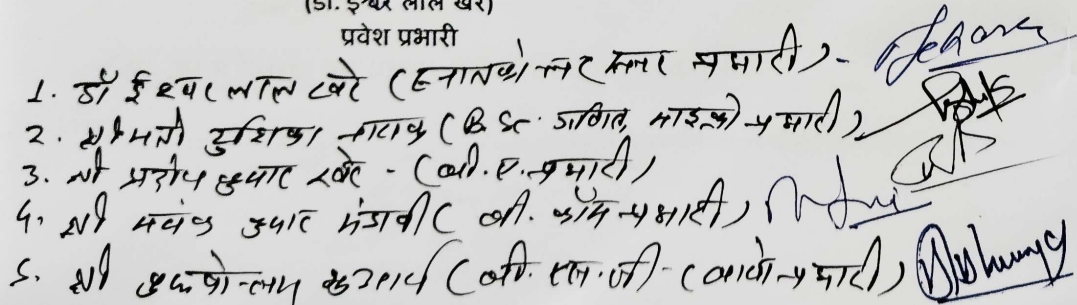 (डॉ. ईश्वर लाल खरे)
प्रवेश प्रभारी
1. डॉ ईश्वर लाल खरे (स्नातकोत्तर स्तर प्रभारी) -
2. श्रीमती (B.Sc. गणित, माइक्रो प्रभारी)
3. श्री प्रदीप कुमार - (बी.ए. प्रभारी)
4. श्री मयंक कुमार मंडावी (बी. कॉम प्रभारी)
5. श्री (बी. एस.सी - (बायो प्रभारी)